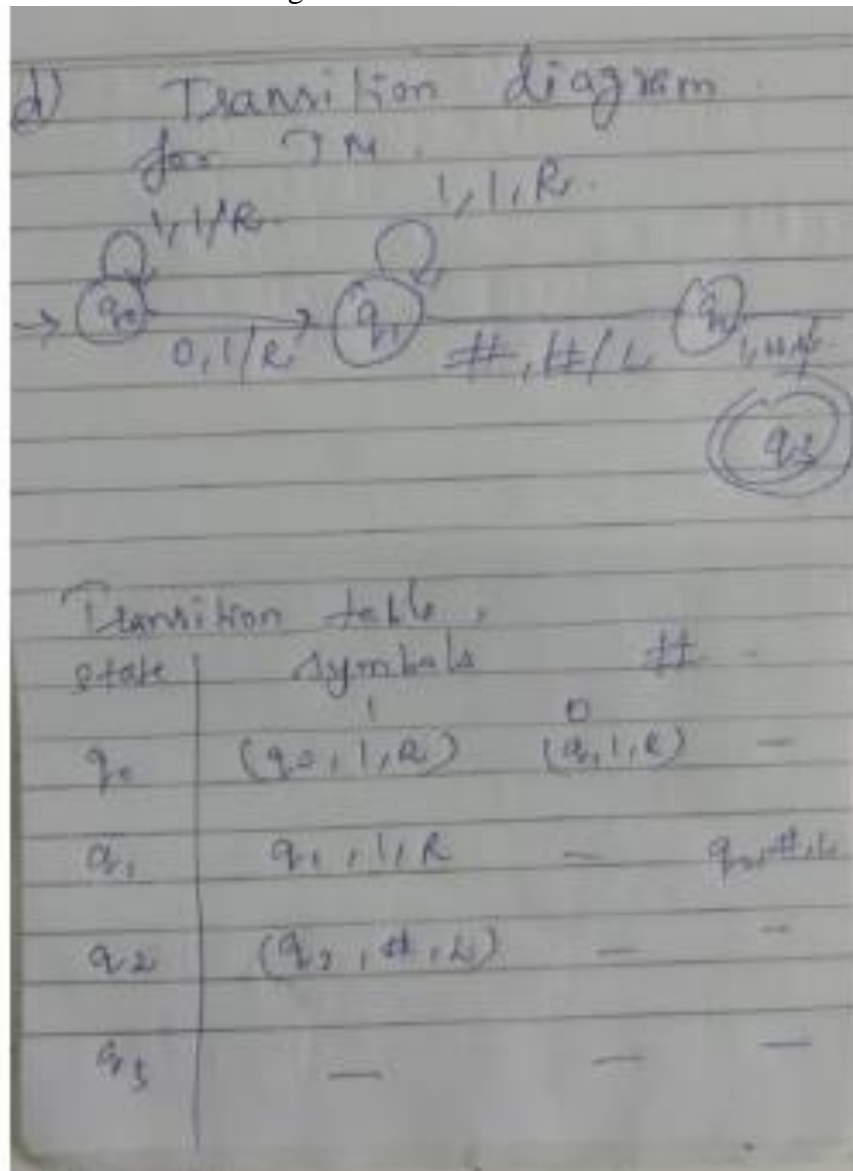 d) Transition diagram
for TM.
1,1/R 1,1,R.
→ q0 q1 q2
0,1/R #,#/L
q3
Transition table,
state symbols #
1 0
q0 (q0,1,R) (q1,1,R) —
q1 q1,1,R — q2,#,L
q2 (q3,#,L) — —
q3 — — —